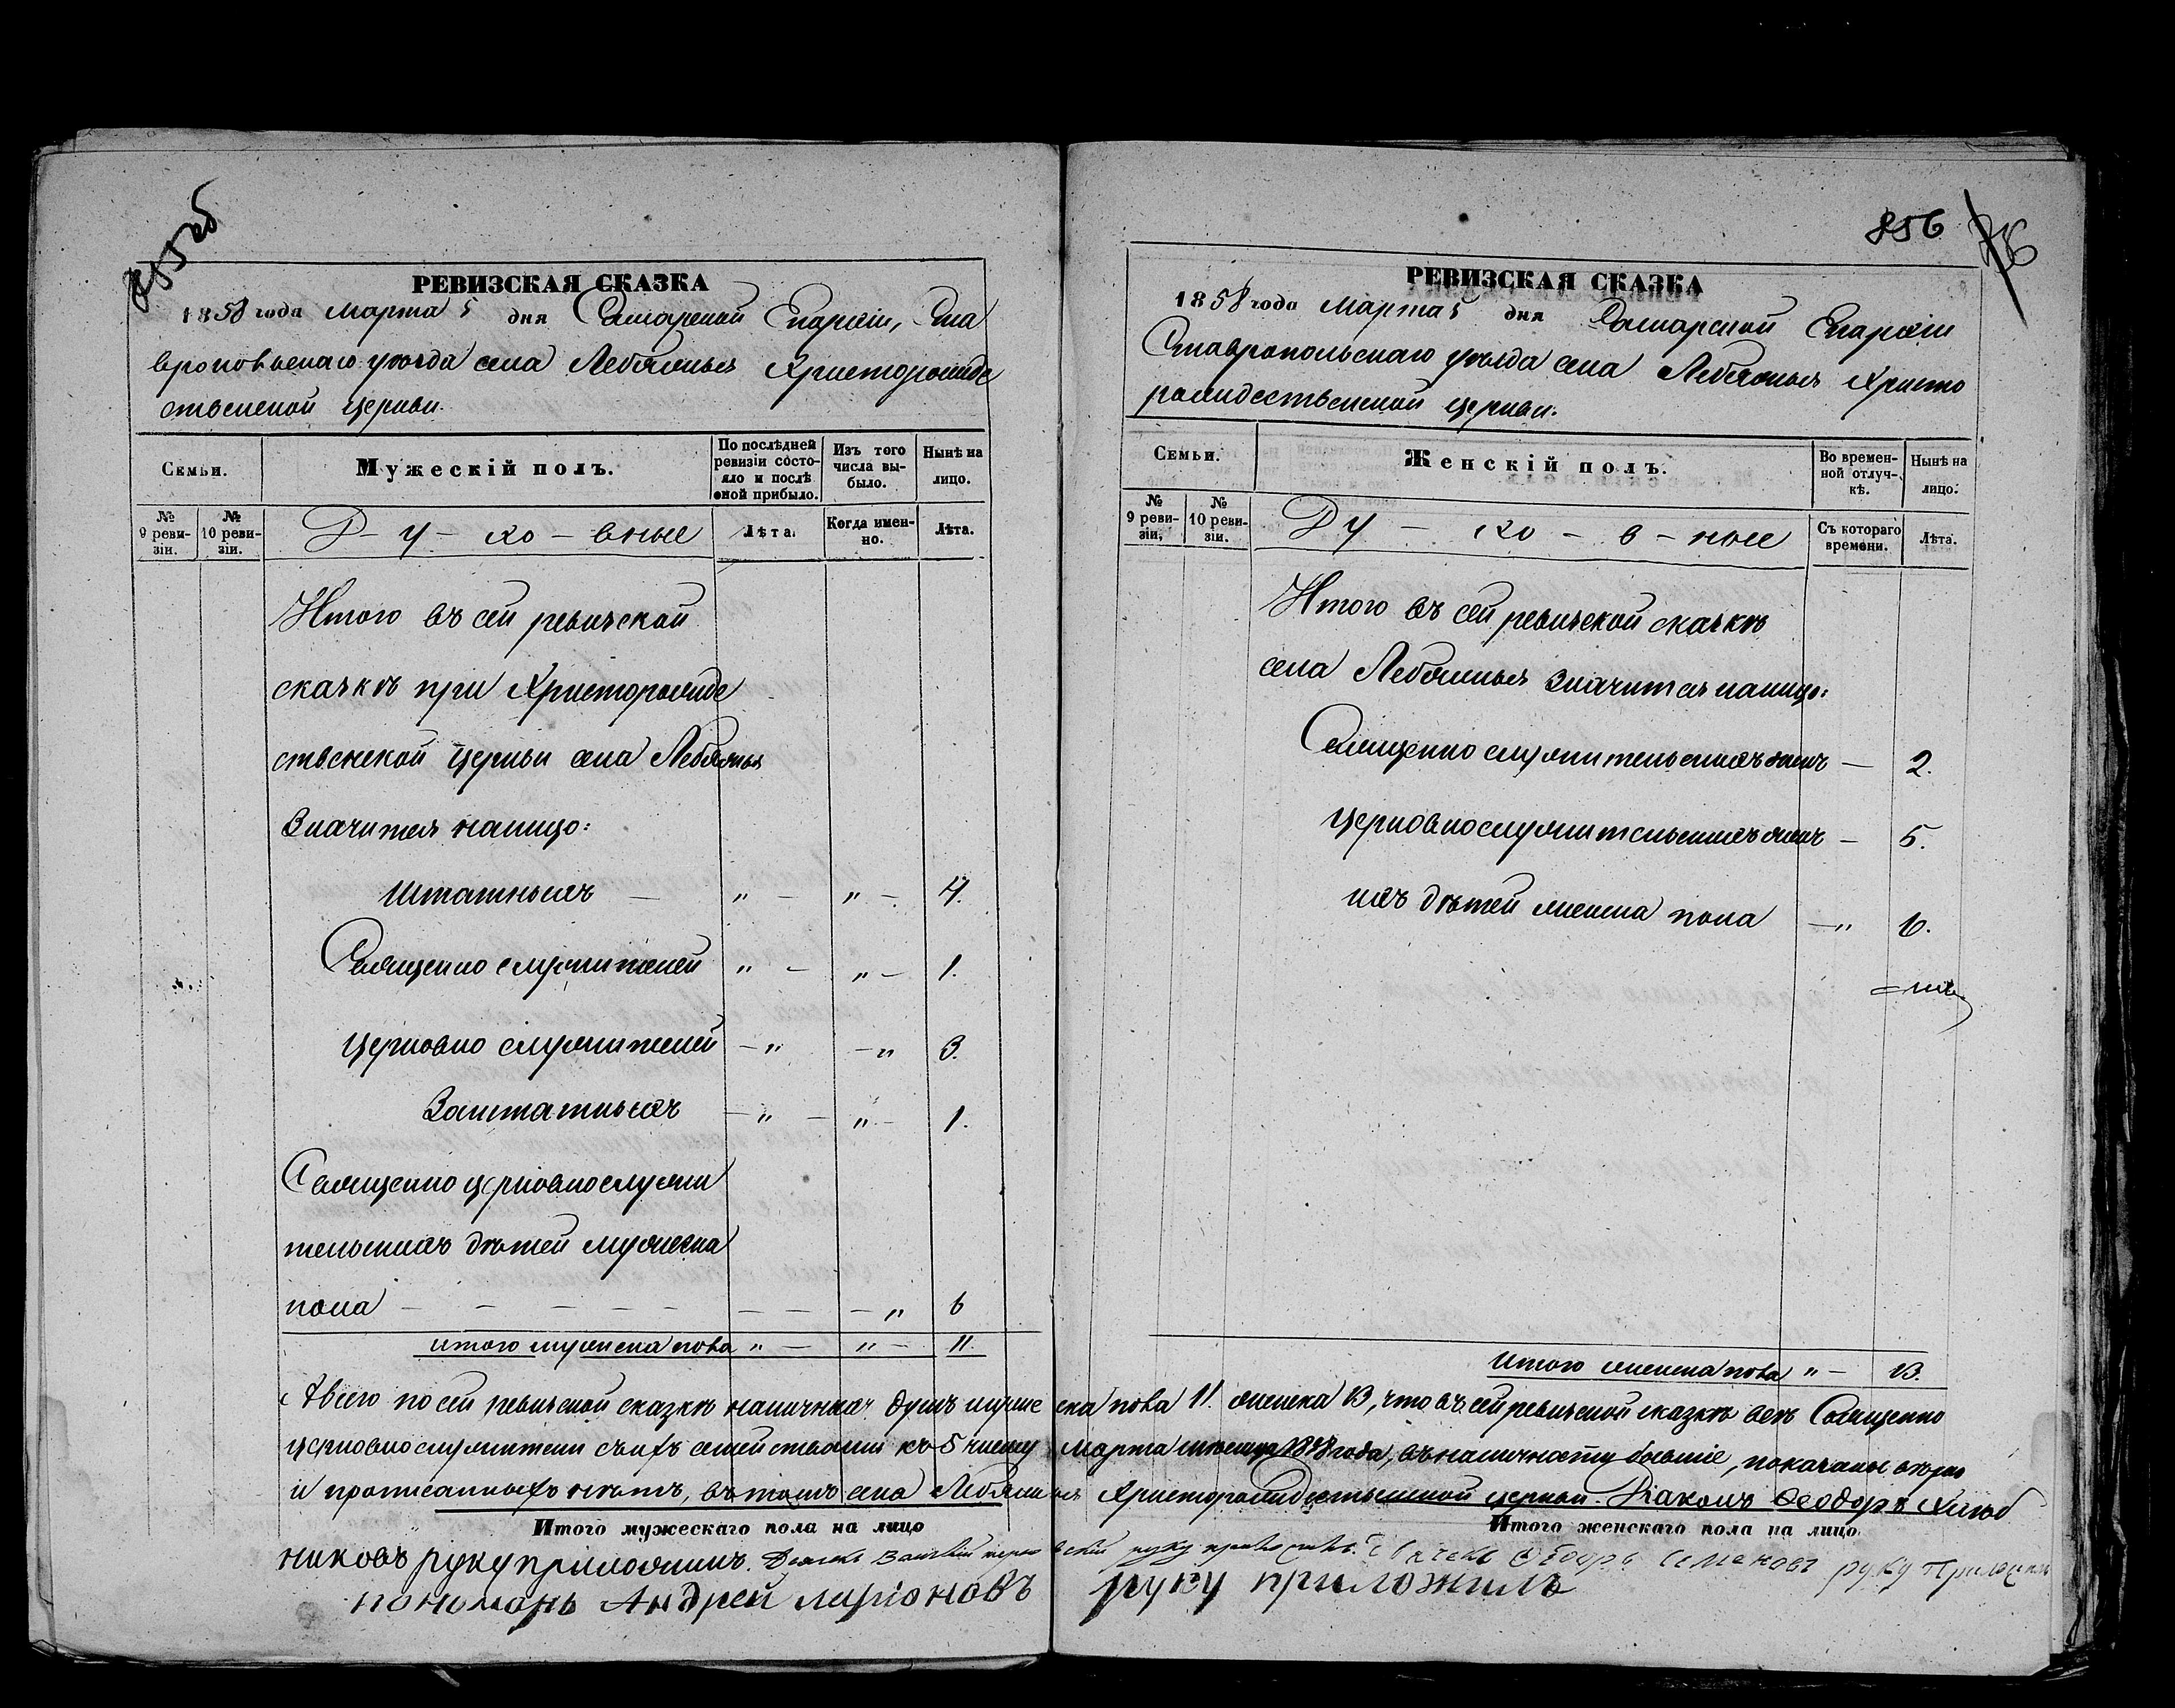 855об
РЕВИЗСКАЯ СКАЗКА
1858 года Марта 5 дня Самарской Епархіи, Ста
вропольскаго уѣзда села Лебяжья Христорожде
ственской церкви.
Семьи.
Мужескій полъ.
По послѣдней ревизіи состояло и послѣ оной прибыло.
Изъ того числа выбыло.
Нынѣ на лицо.
№ 9 ревизіи.
№ 10 ревизіи.
Д-у-хо-вные
Лѣта.
Когда именно.
Лѣта.
Итого въ сей ревизской
сказкѣ при Христорожде
ственской церкви села Лебяжья
Значится налицо:
Штатныхъ — " — " — 4.
Священно служителей " — " — 1.
Церковно служителей — " — " 3.
Заштатныхъ — " — " — 1.
Священно церковнослужи
тельскихъ дѣтей мужеска
пола — — — — — — — — " 6
Итого мужеска пола " — " — 11.
856
РЕВИЗСКАЯ СКАЗКА
1858 года Марта 5 дня Самарской Епархіи
Ставропольскаго уѣзда села Лебяжья Христо
рождественской церкви.
Семьи.
Женскій полъ.
Во временной отлучкѣ.
Нынѣ на лицо.
№ 9 ревизіи.
№ 10 ревизіи.
Ду — хо — в — ные
Съ котораго времени.
Лѣта.
Итого въ сей ревизской сказкѣ
села Лебяжья Значится налицо:
Священно служительскихъ женъ — 2.
Церковнослужительскихъ женъ — 5.
ихъ дѣтей женска пола — " 6.
Итого женска пола " — 13.
А всего по сей ревизской сказкѣ наличныхъ душъ мужеска пола 11. женска 13, что въ сей ревизской сказкѣ всѣ Священно
церковнослужители съ ихъ семействами къ 5 числу Марта мѣсяца 1858 года, въ наличности бывшіе, показаны вѣрно
и прописанныхъ нѣтъ, въ томъ села Лебяжья Христорождественской церкви Діаконъ Ѳеодоръ Хлѣб
Итого мужескаго пола на лицо
Итого женскаго пола на лицо.
никовъ руку приложилъ. руку приложилъ. Ѳедоръ Семеновъ руку приложилъ
пономарь Андрей ларіоновъ руку приложилъ